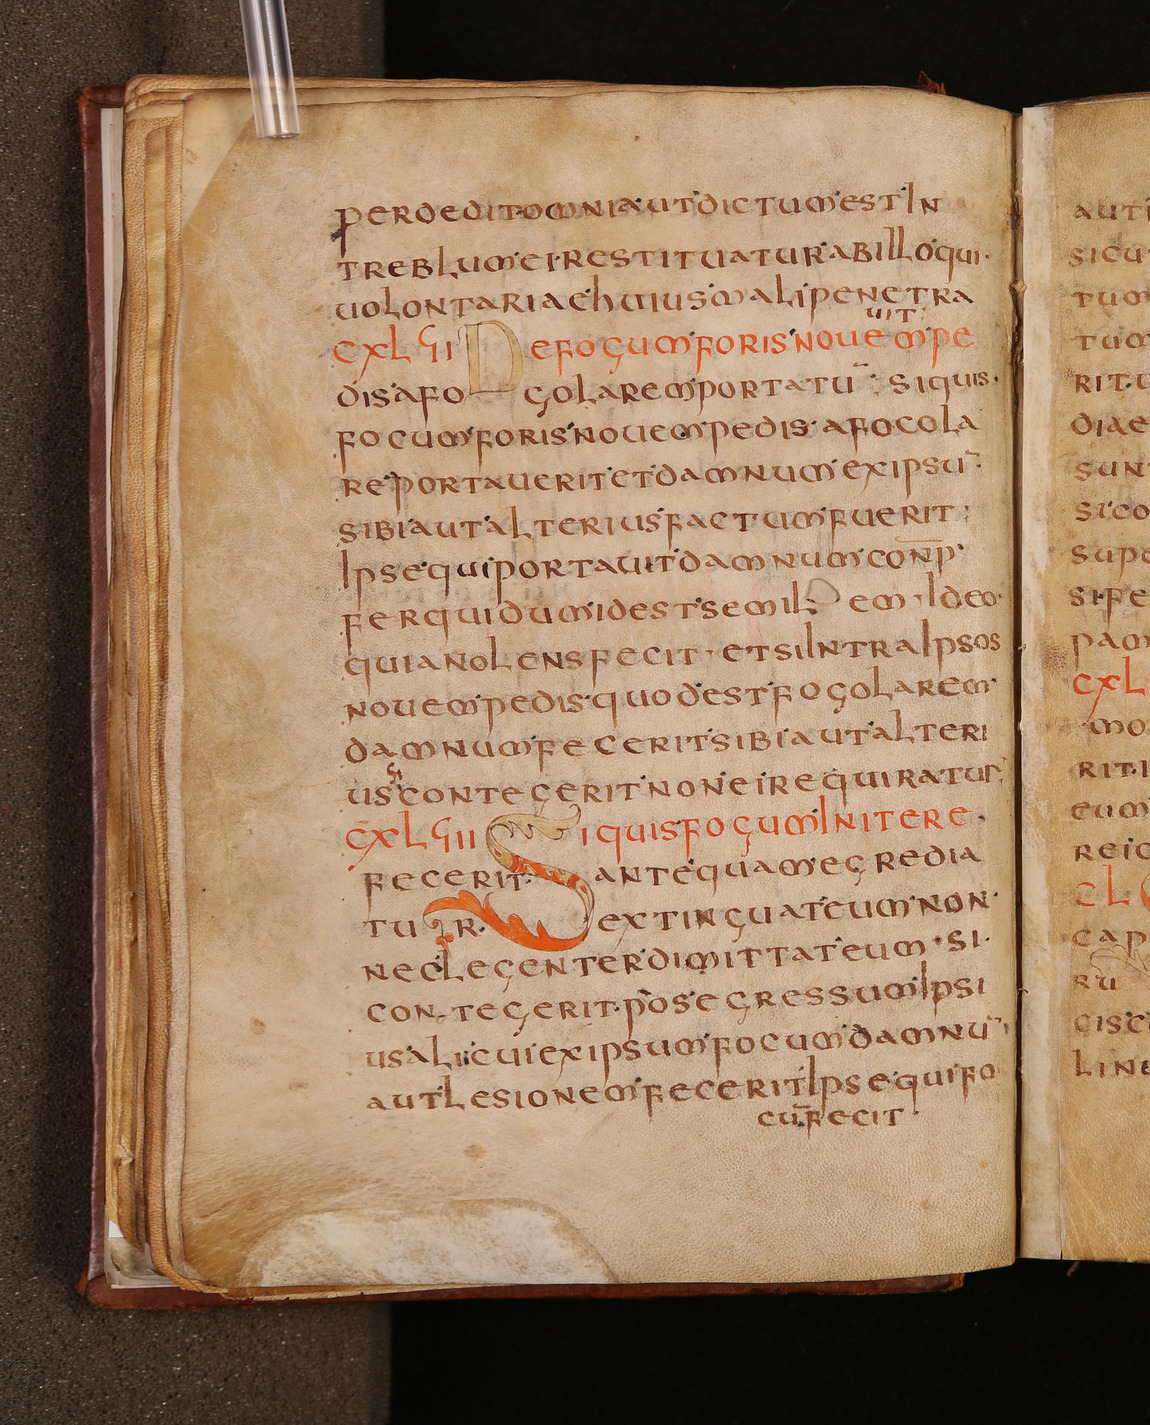 perdedit omnia ut dictum est In
treblum ei restituatur ab illo qui
uolontariae huiusmali penetra
uit
CXLUII De focum foris nouem pe
dis a fogolarem portatu¯ ; si quis
focum foris nouem pedis a focola
re portauerit et damnum ex ipsu¯
sibi aut alterius factum fuerit ;
Ipse qui portauit damnum con̄p
ferquidum id est semilem Ideo
quia nolens fecit et si Intra Ipsos
nouem pedis quod est fogolarem
damnum fecerit sibi aut alteri
si
us contegerit non ei requiratur
CXLUIII Si quis focum In itere
fecerit antequam egredia
tur extinguat eum non
neclegenter dimittat eum si
contegerit pos egressum Ipsi
us alicui ex ipsum focum damnu¯
aut lesionem fecerit Ipse qui fo
cu¯ fecit
aut
sicu
tum
tum
rit u
diae
sun
si co
supe
si fe
pam
CXL
mo
rit i
eum
reic
CL
cap
ru
cis c
line